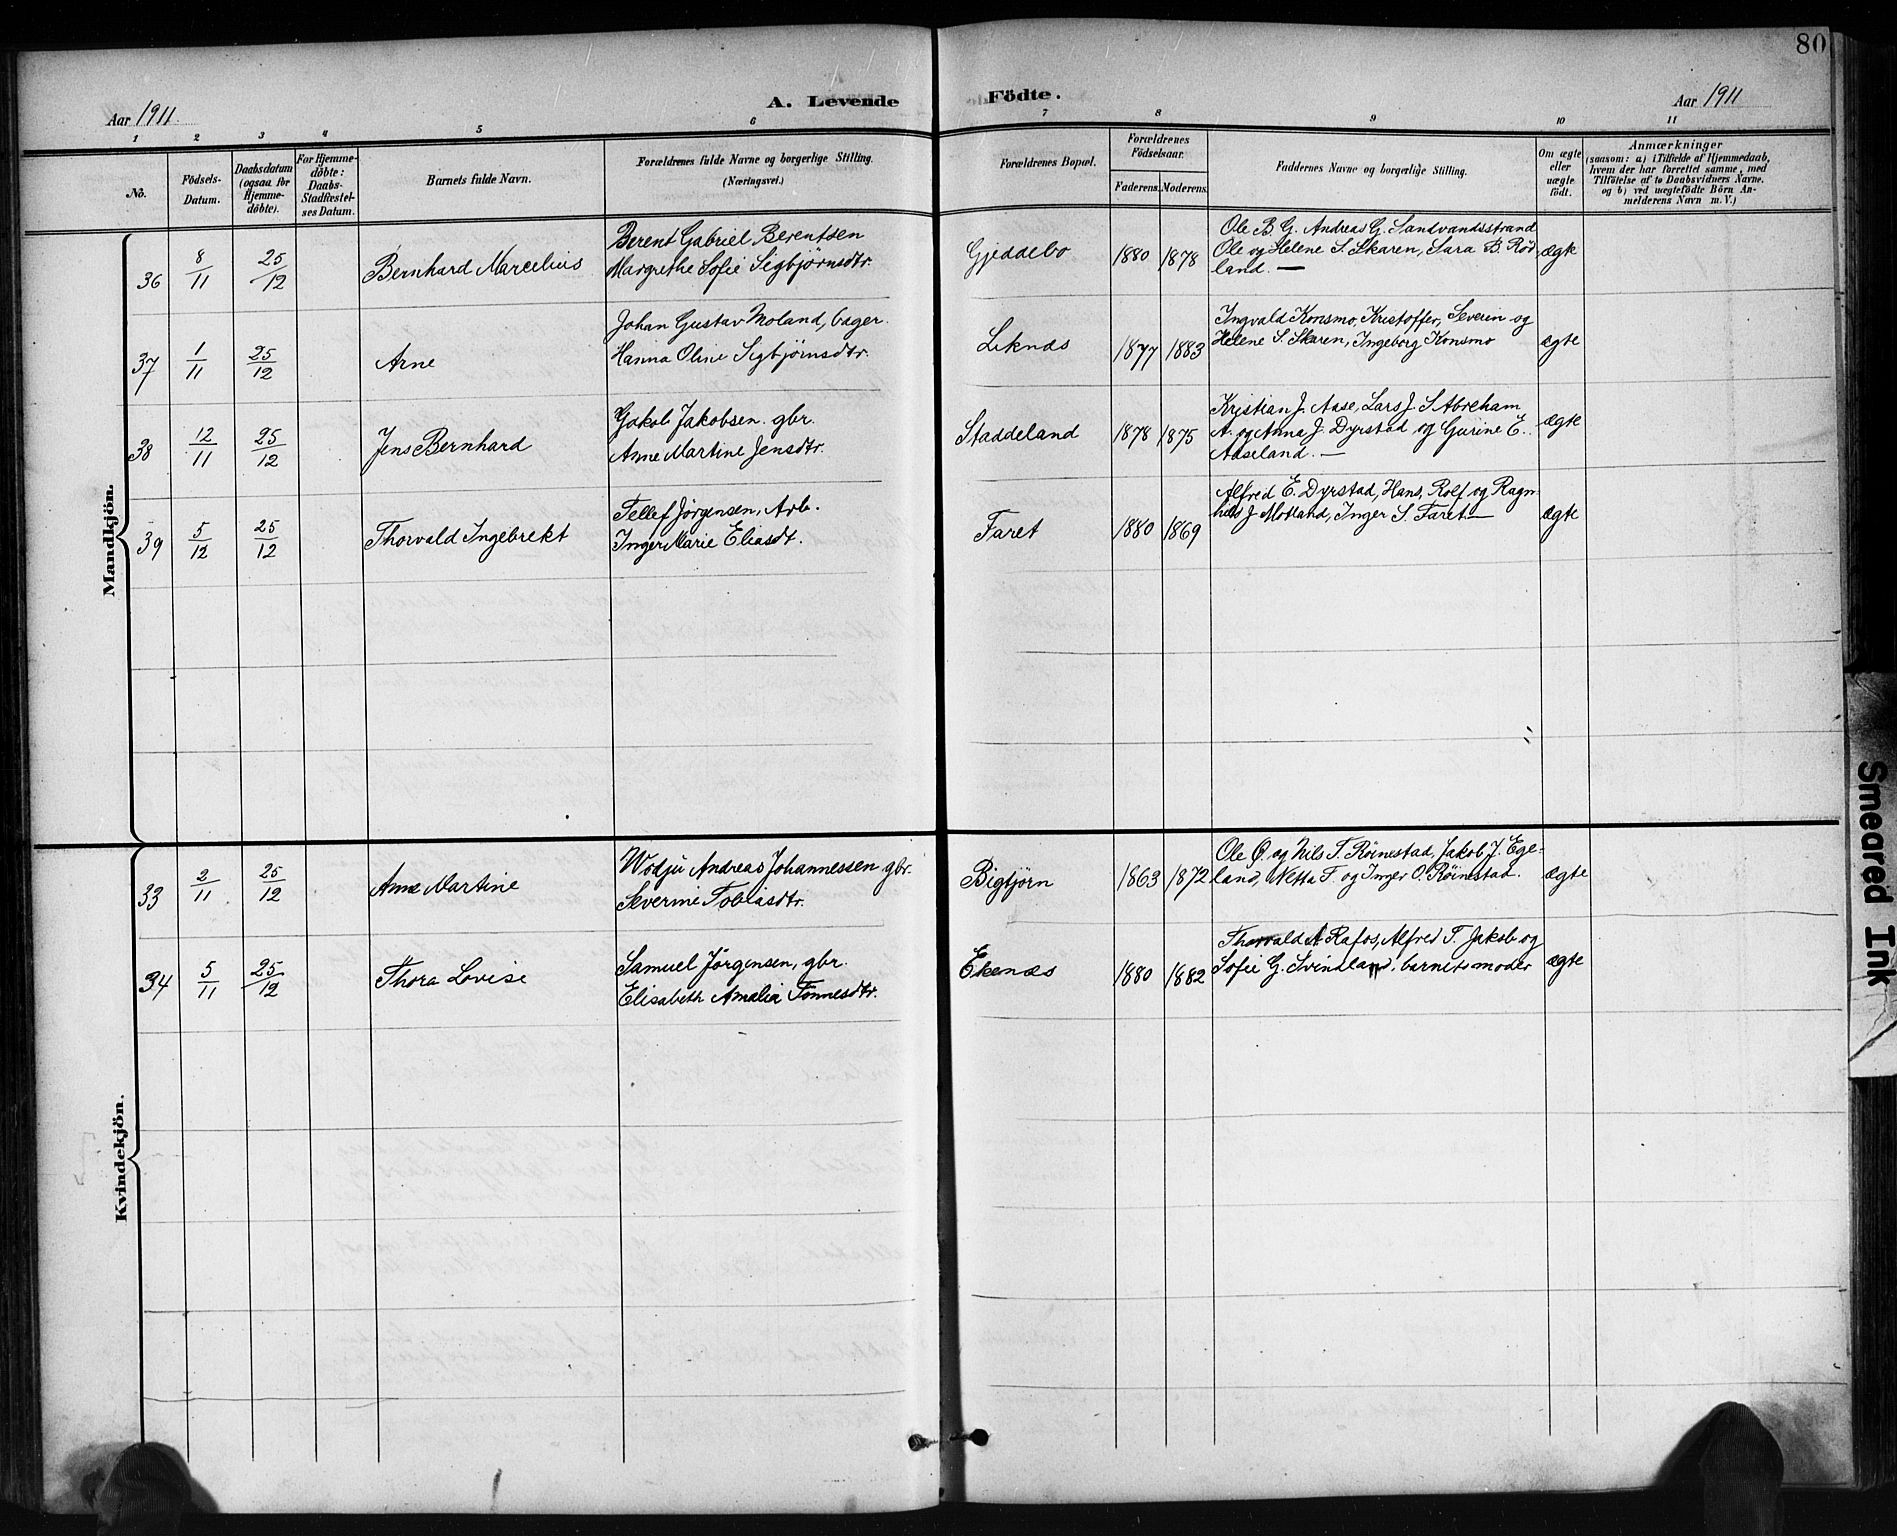 80
Aar 1911
A. Levende Födte.
Aar 1911
1 2 3 4 5 6 7 8 9 10 11
No.
Födsels-Datum.
Daabsdatum (ogsaa for Hjemme-döbte).
For Hjemme-döbte: Daabs-Stadfestel-ses Datum.
Barnets fulde Navn.
Forældrenes fulde Navne og borgerlige Stilling.
(Næringsvei.)
Forældrenes Bopæl.
Forældrenes Födselsaar.
Faderens. Moderens.
Faddernes Navne og borgerlige Stilling.
Om ægte eller uægte födt.
Anmærkninger
(saasom: a) i Tilfælde af Hjemmedaab,
hvem der har forrettet samme, med
Tilföielse af to Daabsvidners Navne.
og b) ved uægtefödte Börn An-
melderens Navn m. V.)
Mandkjön.
36 8/11 25/12 Bernhard Marcelius
Berent Gabriel Berentsen
Margrethe Sofie Sigbjørnsdtr.
Gjeddebo 1880 1878
Ole B. G. Andreas G. Sandvandsstrand
Ole og Helene S. Skaren, Sara B. Röd
land. —
ægte
37 1/11 25/12 Arne
Johan Gustav Moland, bager.
Hanna Oline Sigbjørnsdtr.
Liknæs 1877 1883
Ingvald Konsmo, Kristoffer, Severin og
Helene S. Skaren, Ingeborg Konsmo
ægte
38 12/11 25/12 Jens Bernhard
Jakob Jakobsen. gbr.
Anne Martine Jensdtr.
Staddeland 1878 1875
Kristian J. Aase, Lars J. S. Abreham
A. og Anna J. Dyrstad og Gurine E.
Aaseland. —
ægte
39 5/12 25/12 Thorvald Ingebrekt
Tellef Jørgensen, Arb.
Inger Marie Eliasdt.
Faret 1880 1869
Alfred E. Dyrstad, Hans, Rolf og Ragn-
hild J. Motland, Inger S. Faret —
ægte
Kvindekjön.
33 2/11 25/12 Anne Martine
Andreas Johannessen gbr.
Severine Tobiasdtr.
Bigtjörn 1863 1872
Ole O. og Nils T. Röinestad, Jakob J. Ege-
land, Netta T. og Inger O. Röinestad.
ægte
34 5/11 25/12 Thora Lovise
Samuel Jörgensen, gbr.
Elisabeth Amalia Tönnesdtr.
Ekenæs 1880 1882
Thorvald A. Rafos, Alfred T. Jakob og
Sofie G. Svindland, barnets moder
ægte
Smeared Ink